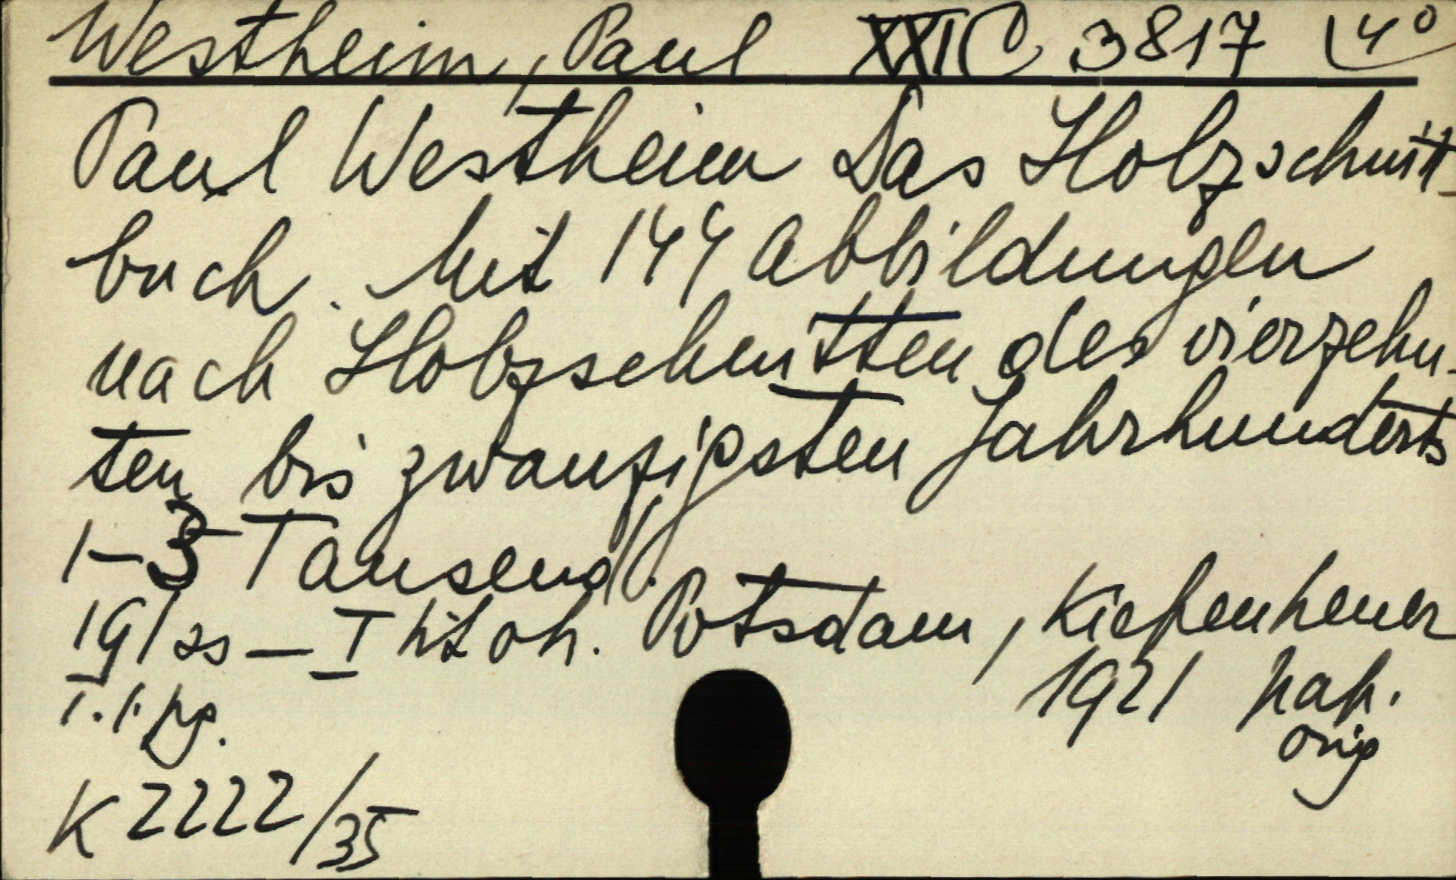 Westheim, Paul XXIC 3817 4°
Paul Westheim Das Holzschnitt-
buch. Mit 144 Abbildungen
nach Holzschnitten des vierzehn-
ten bis zwanzigsten Jahrhunderts
1-5 Tausend.
191 ss — I lit oh. Potsdam, Kiepenheuer
1921 pap.
T. I. pg.
orig
K 2222/35